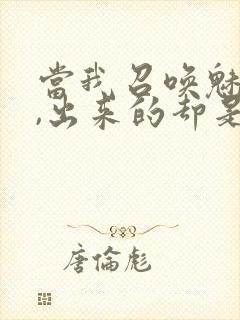 當我召喚魅
,出來的卻是
唐倫彪